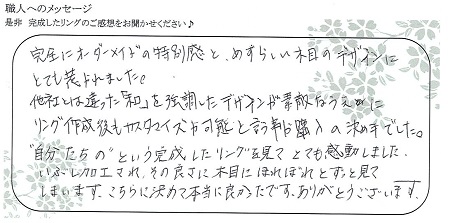 職人へのメッセージ
是非 完成したリングのご感想をお聞かせください♪
完全にオーダーメイドの特別感と、めずらしい木目のデザインに
とても惹かれました。
他社とは違った「和」を強調したデザインが素敵なうえに
リング作成後もカスタマイズが可能と言う事が購入の決め手でした。
"自分たちの"という完成したリングを見てとても感動しました。
いぶし加工され、その良さに木目にほれぼれとずっと見て
しまいます。こちらに決めて本当に良かったです。ありがとうございます。